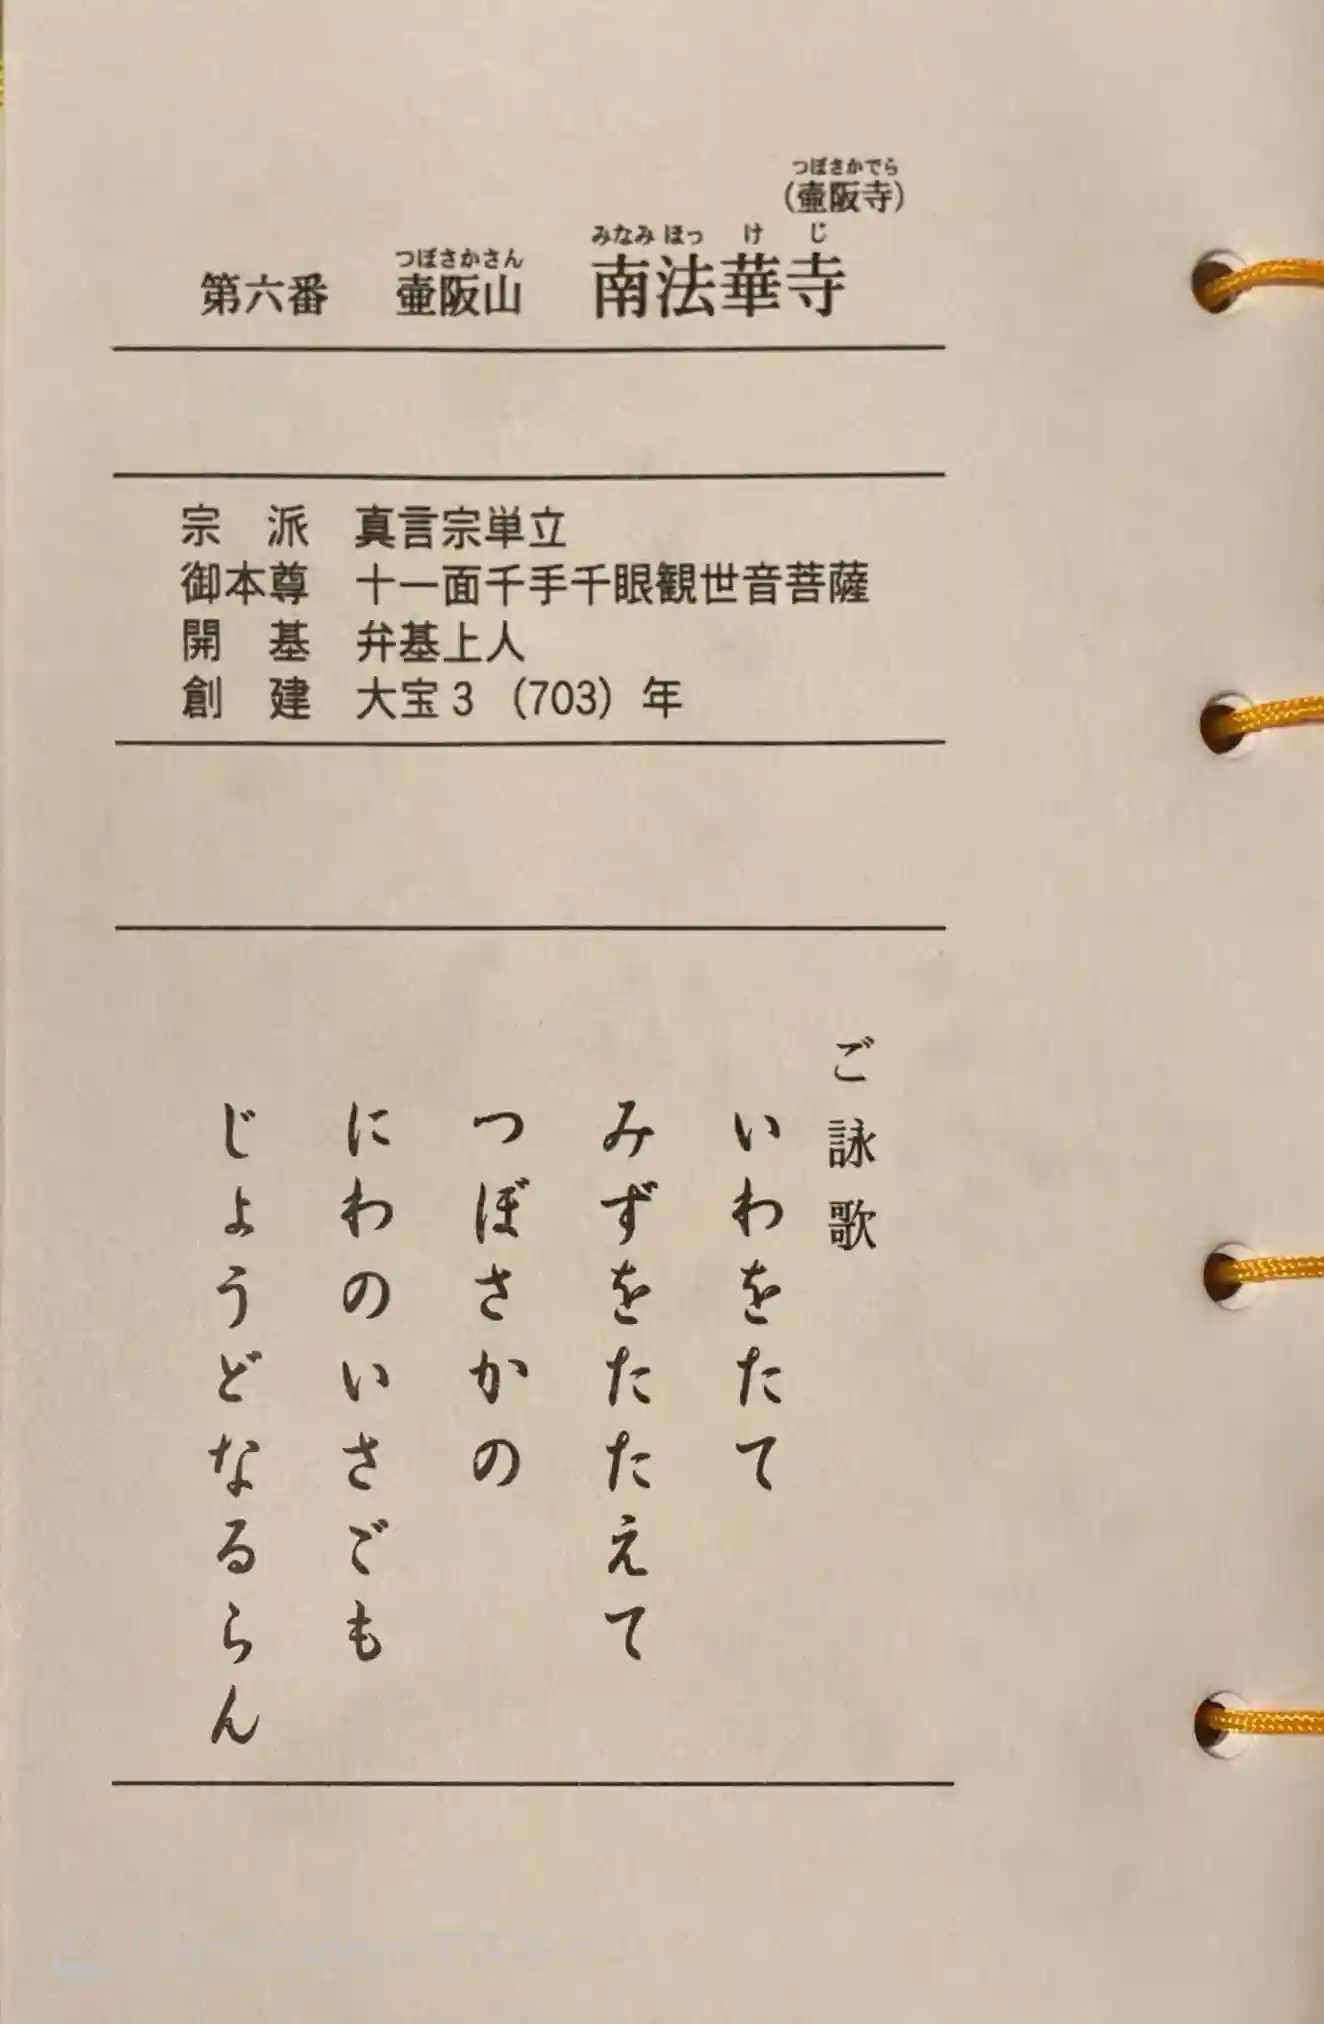 つぼさかでら
（壷阪寺）
つぼさかさん　みなみ ほっ け じ
第六番　壷阪山　南法華寺
宗　派　真言宗単立
御本尊　十一面千手千眼観世音菩薩
開　基　弁基上人
創　建　大宝3（703）年
ご詠歌
いわをたて
みずをたたえて
つぼさかの
にわのいさごも
じょうどなるらん
CamScannerでスキャン